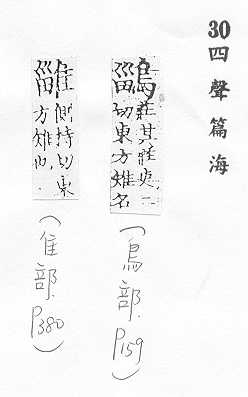 30 四聲篇海
鶅 莊其莊吏二
切東方雉名
(鳥部. P159)
側持切東
方雉也
(隹部. P380)